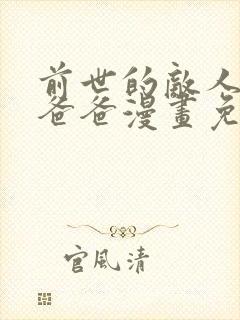 前世的敵人
爸爸漫畫免
官風清